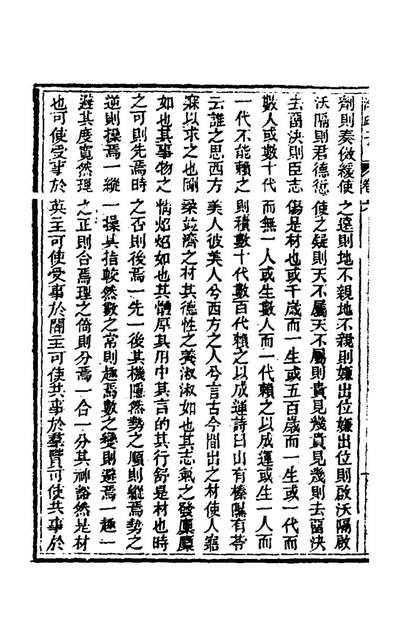 劑則奏儆緩使之遠則地不親地不親則嫌出位嫌出位則啟沃隔啟
沃隔則君德愆使之疑則天不屬天不屬則責見幾責見幾則去留決
去留決則臣志傷是材也或千歲而一生或五百歲而一生或一代而
數人或數十代而無一人或生數人而一代賴之以成運或生一人而
一代不能賴之則積數十代數百代賴之以成運詩曰山有榛隰有苓
云誰之思西方美人彼美人兮西方之人兮言古今間出之材使人寤
寐以求之也剛柔竝濟之材其德性之養淑淑如也其志氣之發廩廩
如也其事物之情炤炤如也其體原其用中其言的其行舒是材也時
之可則先焉時之否則後焉一先一後其機隱然勢之順則縱焉勢之
逆則操焉一縱一操其指較然數之常則趨焉數之變則避焉一趨一
避其度寬然理之正則合焉理之倚則分焉一合一分其神谽然是材
也可使受事於英主可使受事於闇主可使共事於羣賢可使共事於